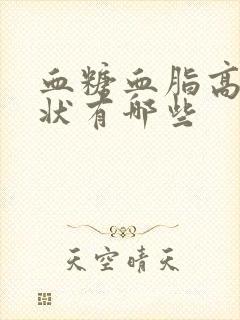 血糖血脂高
状有哪些
天空晴天